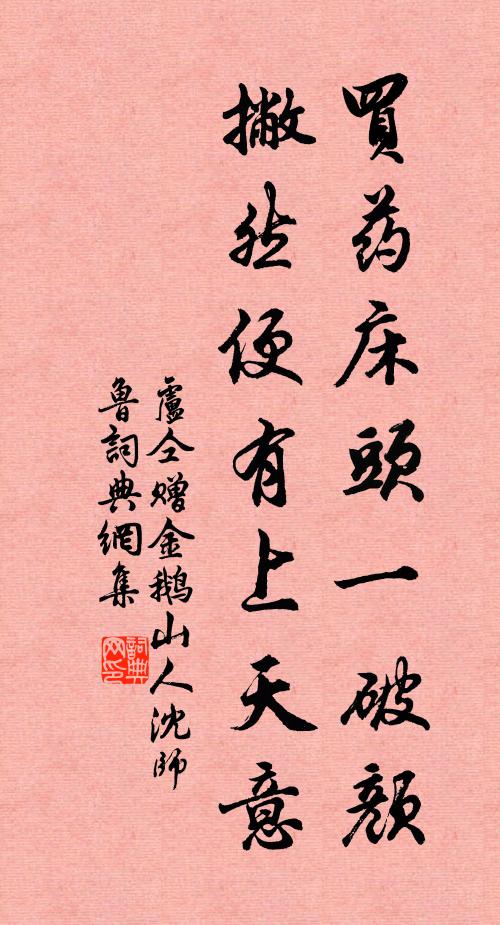 買药床頭一破顔
撇然便有上天意
盧仝赠金鹅山人沈師
魯詞典網集
詞典网印